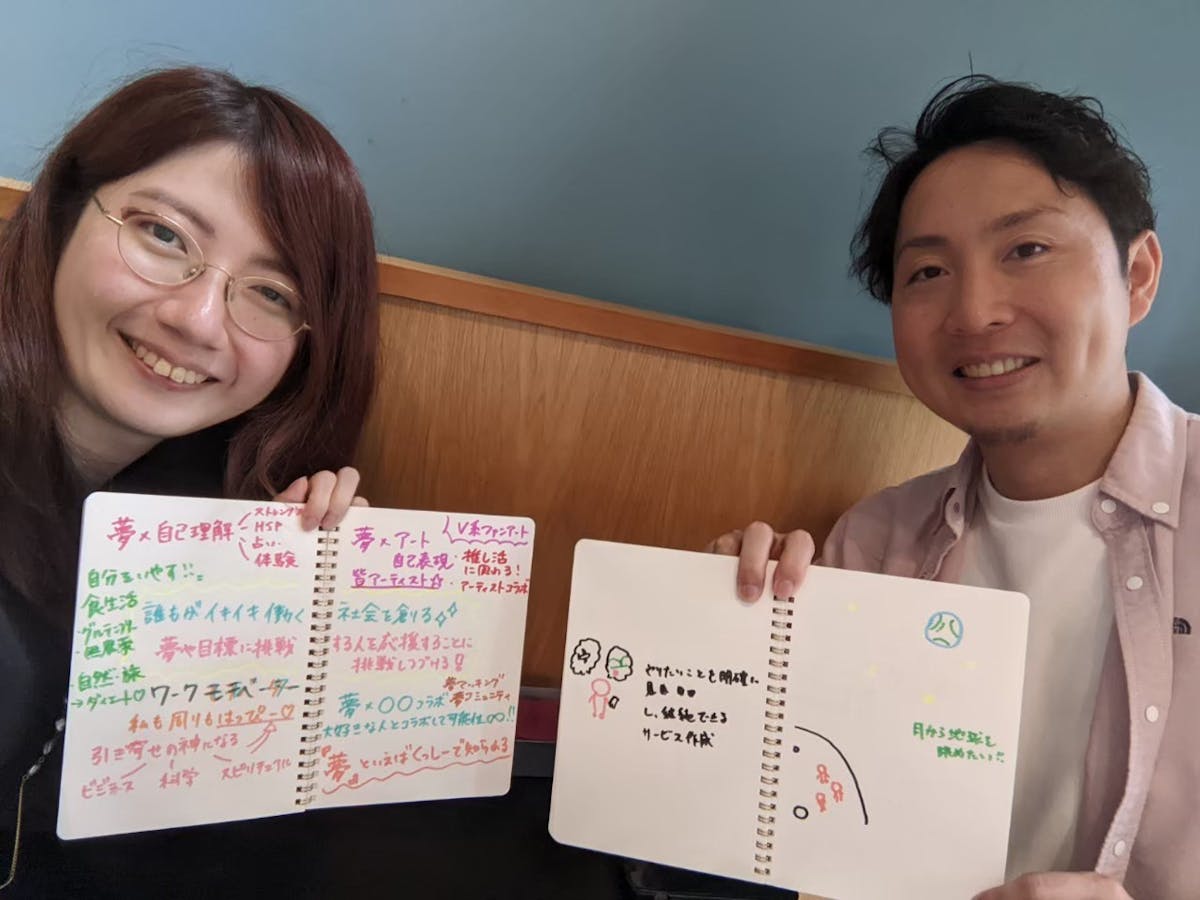 夢×自己理解
ストレングス
HSP
占い
体験
自分をいやす!!
食生活
・グルテンフリー
自然・旅
→ダイエット♡
誰もがイキイキ働く
夢や目標に挑戦
ワークモチベーター
私も周りもはっぴー♡
引き寄せの神になる
ビジネス
科学
スピリチュアル
夢×アート
V系ファンアート
自己表現
皆アーティスト☆
推し活
に関わる!
アーティストコラボ
社会を創る
する人を応援することに
挑戦しつづける!
夢×〇〇コラボ
夢コミュニティ
大好きな人とコラボして可能性∞!!
『夢』といえばくっしーで知られる
やりたいことを明確に
し、継続できる
サービス作成
月から地球を
眺めたい